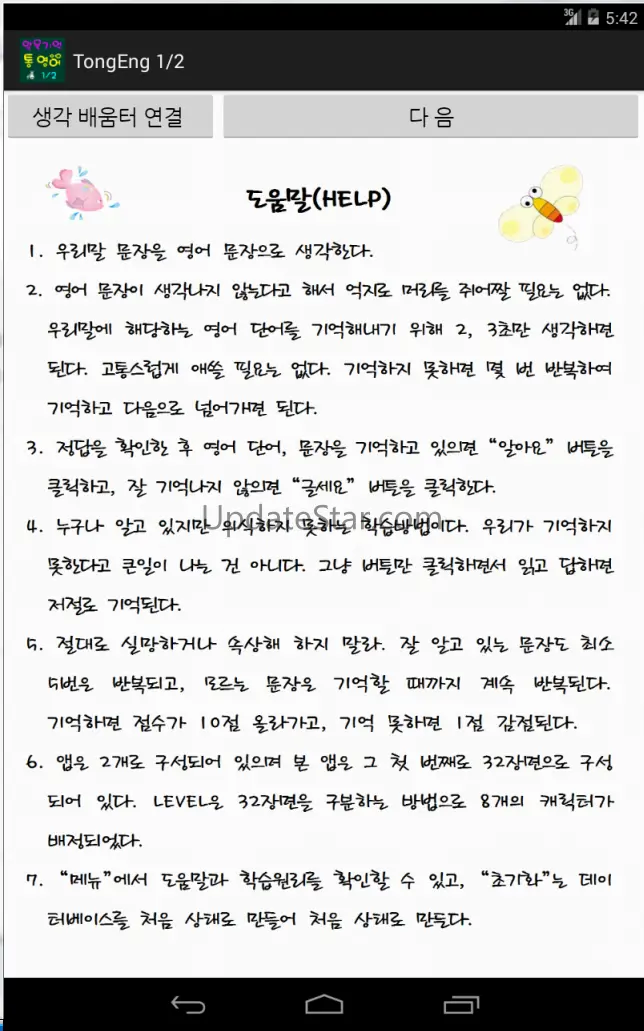 3G 5:42
망우기억
통영어
1/2
TongEng 1/2
생각 배움터 연결
다 음
도움말(HELP)
1. 우리말 문장을 영어 문장으로 생각한다.
2. 영어 문장이 생각나지 않는다고 해서 억지로 머리를 쥐어짤 필요는 없다.
우리말에 해당하는 영어 단어를 기억해내기 위해 2, 3초만 생각하면
된다. 고통스럽게 애쓸 필요는 없다. 기억하지 못하면 몇 번 반복하여
기억하고 다음으로 넘어가면 된다.
3. 정답을 확인한 후 영어 단어, 문장을 기억하고 있으면 “알아요” 버튼을
클릭하고, 잘 기억나지 않으면 “글세요” 버튼을 클릭한다.
UpdateStar.com
4. 누구나 알고 있지만 의식하지 못하는 학습방법이다. 우리가 기억하지
못한다고 큰일이 나는 건 아니다. 그냥 버튼만 클릭하면서 읽고 답하면
저절로 기억된다.
5. 절대로 실망하거나 속상해 하지 말라. 잘 알고 있는 문장도 최소
5번은 반복되고, 모르는 문장은 기억할 때까지 계속 반복된다.
기억하면 점수가 10점 올라가고, 기억 못하면 1점 감점된다.
6. 앱은 2개로 구성되어 있으며 본 앱은 그 첫 번째로 32장면으로 구성
되어 있다. LEVEL은 32장면을 구분하는 방법으로 8개의 캐릭터가
배정되었다.
7. “메뉴”에서 도움말과 학습원리를 확인할 수 있고, “초기화”는 데이
터베이스를 처음 상태로 만들어 처음 상태로 만든다.